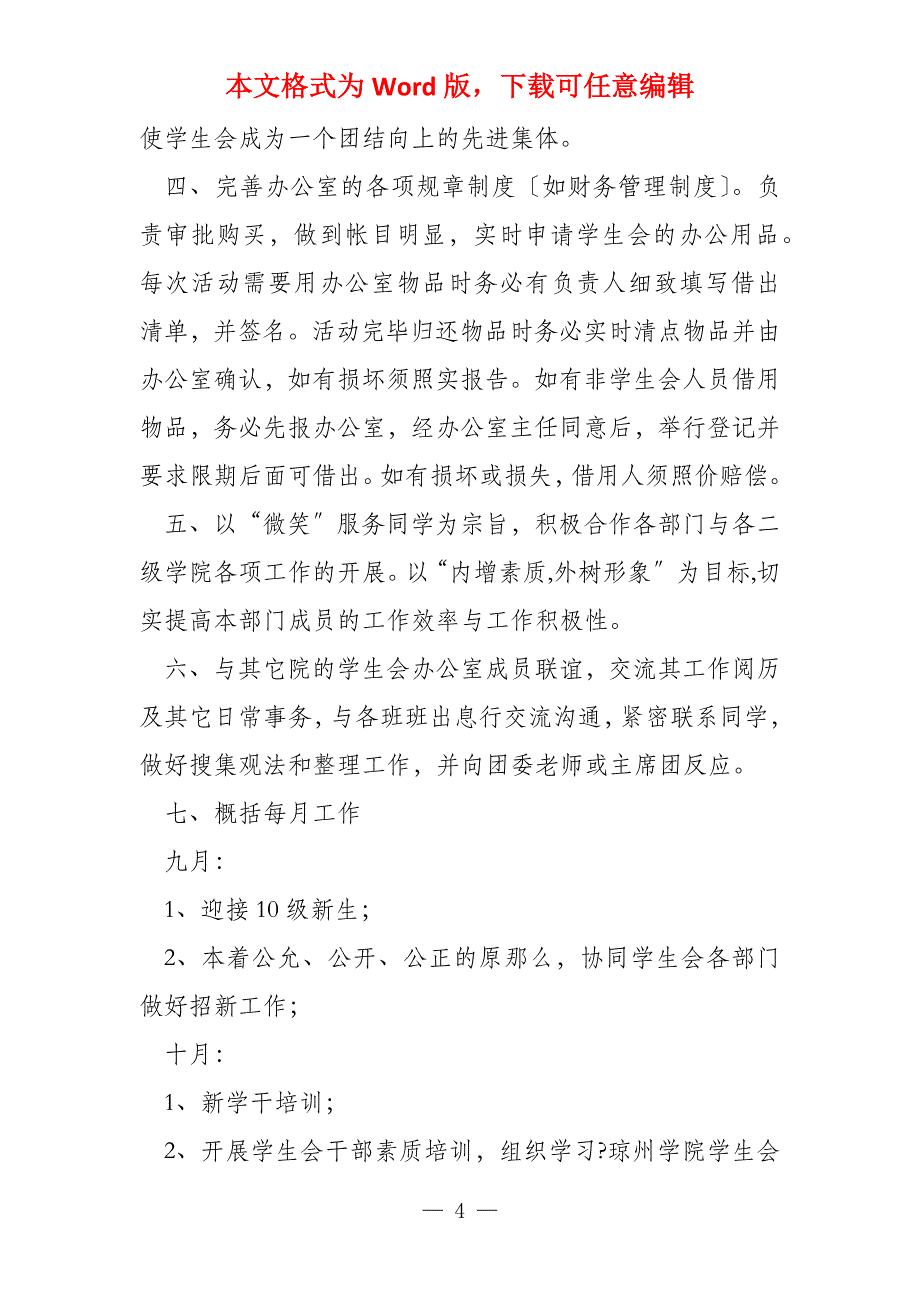 本文格式为 Word 版，下载可任意编辑
使学生会成为一个团结向上的先进集体。
四、完善办公室的各项规章制度〔如财务管理制度〕。负
责审批购买，做到帐目明显，实时申请学生会的办公用品。
每次活动需要用办公室物品时务必有负责人细致填写借出
清单，并签名。活动完毕归还物品时务必实时清点物品并由
办公室确认，如有损坏须照实报告。如有非学生会人员借用
物品，务必先报办公室，经办公室主任同意后，举行登记并
要求限期后面可借出。如有损坏或损失，借用人须照价赔偿。
五、以“微笑〞服务同学为宗旨，积极合作各部门与各二
级学院各项工作的开展。以“内增素质,外树形象〞为目标,切
实提高本部门成员的工作效率与工作积极性。
六、与其它院的学生会办公室成员联谊，交流其工作阅历
及其它日常事务，与各班班出息行交流沟通，紧密联系同学，
做好搜集观法和整理工作，并向团委老师或主席团反应。
七、概括每月工作
九月：
1、迎接 10 级新生；
2、本着公允、公开、公正的原那么，协同学生会各部门
做好招新工作；
十月：
1、新学干培训；
2、开展学生会干部素质培训，组织学习?琼州学院学生会
— 4 —